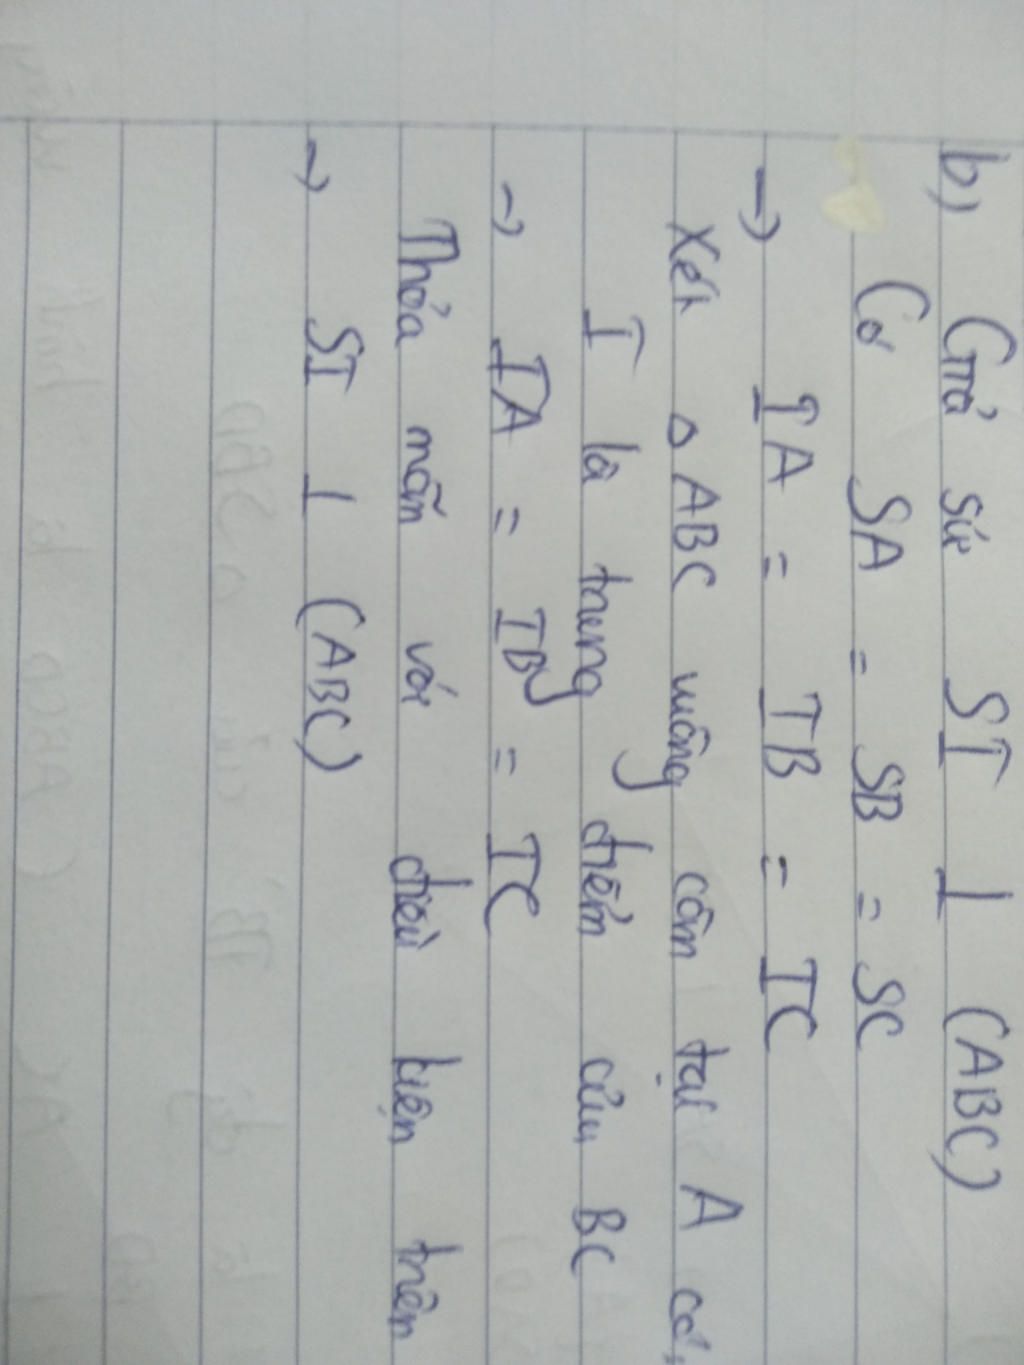 b) Giả sử SI ⊥ (ABC)
Có SA = SB = SC
→ IA = IB = IC
Xét △ABC vuông cân tại A có,
I là trung điểm của BC
→ IA = IB = IC
Thỏa mãn với điều kiện trên
→ SI ⊥ (ABC)